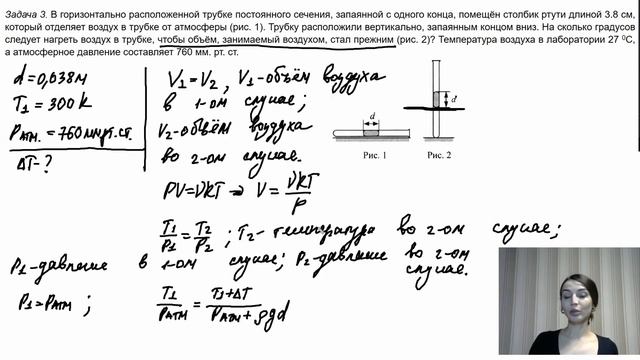 Задача 3. В горизонтально расположенной трубке постоянного сечения, запаянной с одного конца, помещён столбик ртути длиной 3.8 см,
который отделяет воздух в трубке от атмосферы (рис. 1). Трубку расположили вертикально, запаянным концом вниз. На сколько градусов
следует нагреть воздух в трубке, чтобы объём, занимаемый воздухом, стал прежним (рис. 2)? Температура воздуха в лаборатории 27 ⁰С,
а атмосферное давление составляет 760 мм. рт. ст.
d = 0,038 м
T₁ = 300 k
Pатм. = 760 мм рт. ст.
ΔT - ?
V₁ = V₂, V₁ - объём воздуха
в 1-ом случае;
V₂ - объём воздуха
во 2-ом случае.
PV = νRT → V = νRT/P
d
Рис. 1
d
Рис. 2
T₁/P₁ = T₂/P₂ ; T₂ - температура во 2-ом случае;
P₁ - давление в 1-ом случае; P₂ - давление во 2-ом
случае.
P₁ = Pатм ; T₁/Pатм = (T₁ + ΔT)/(Pатм + ρgd)